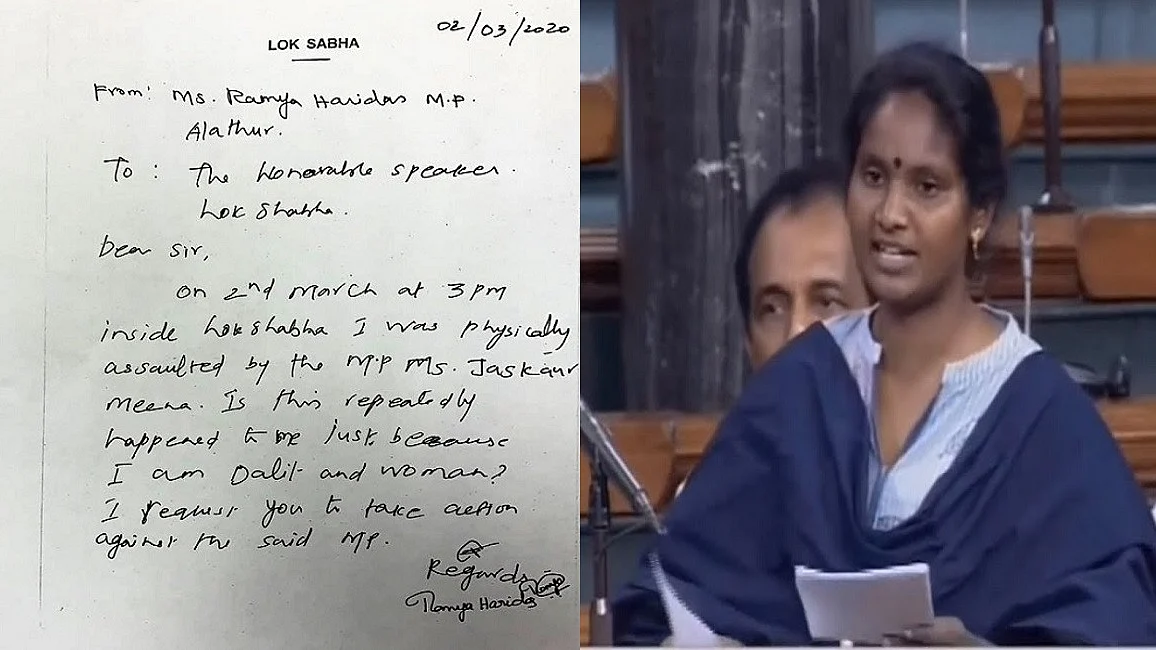 02/03/2020
LOK SABHA
From: Ms. Ramya Haridas M.P.
Alathur.
To : The honorable speaker.
Lok Shabha.
Dear Sir,
On 2nd March at 3 pm
inside Lok Shabha I was physically
assaulted by the M.P Ms. Jaskaur
Meena. Is this repeatedly
happened to me just because
I am Dalit and woman?
I request you to take action
against the said MP.
Regards
Ramya Haridas